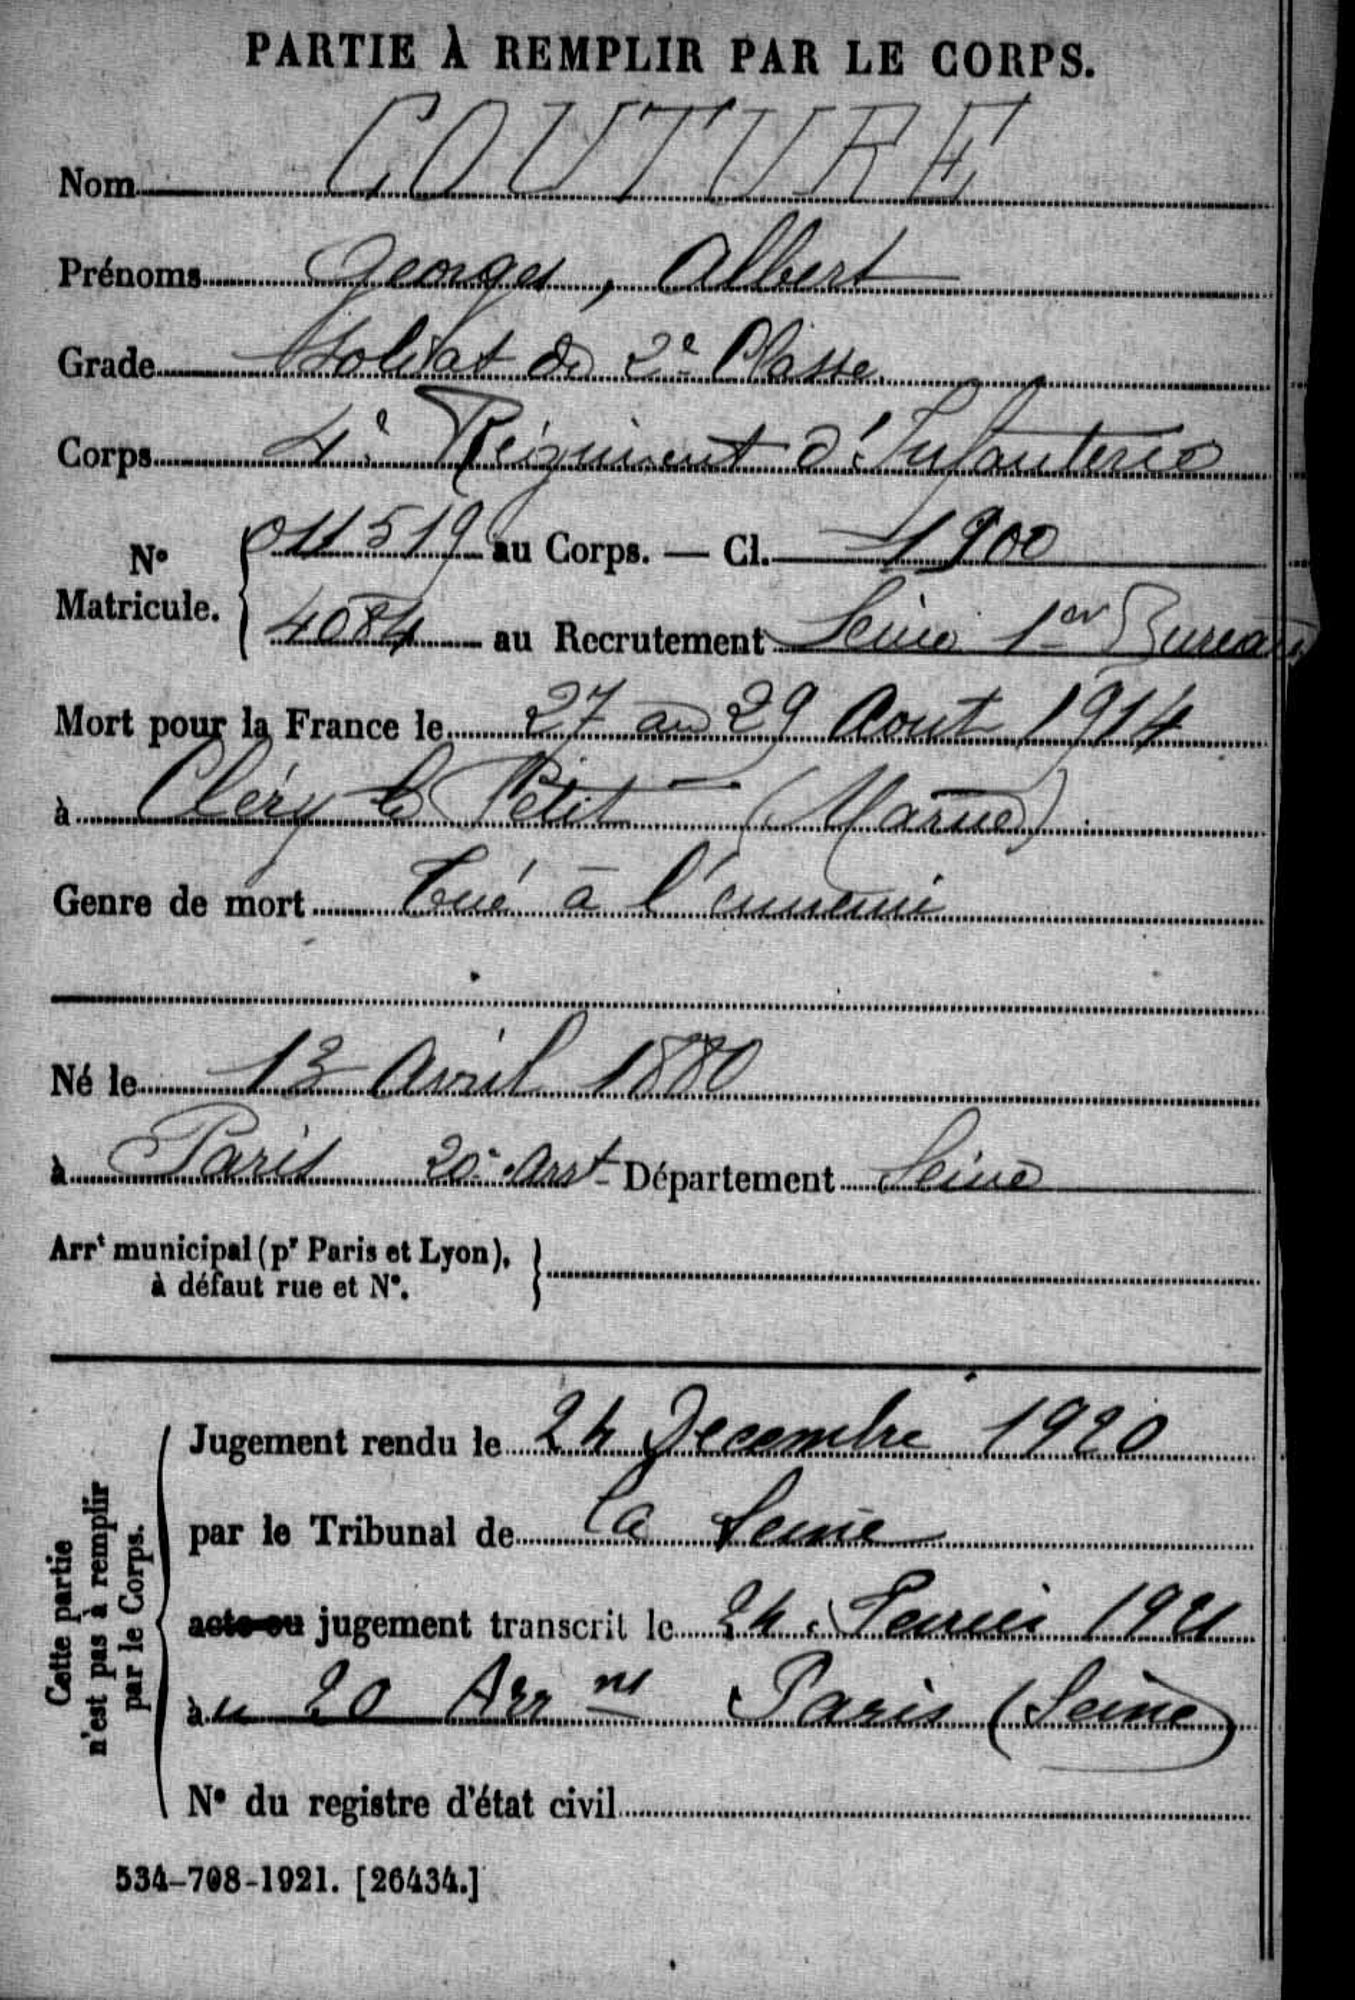 PARTIE À REMPLIR PAR LE CORPS.
Nom COUTURE
Prénoms Georges, Albert
Grade Soldat de 2e Classe
Corps 4e Régiment d'Infanterie
No Matricule. { 011519 au Corps. — Cl. 1900
4084 au Recrutement Seine 1er Bureau
Mort pour la France le 27 au 29 Aout 1914
à Cléry le Petit (Marne)
Genre de mort Tué à l'ennemi
Né le 13 Avril 1880
à Paris 20e Arrt Département Seine
Arrt municipal (pr Paris et Lyon),
à défaut rue et No.
Cette partie
n'est pas à remplir
par le Corps.
Jugement rendu le 24 Decembre 1920
par le Tribunal de la Seine
acte ou jugement transcrit le 24 Fevrier 1921
au 20 Arr nt Paris (Seine)
No du registre d'état civil
534-708-1921. [26434.]